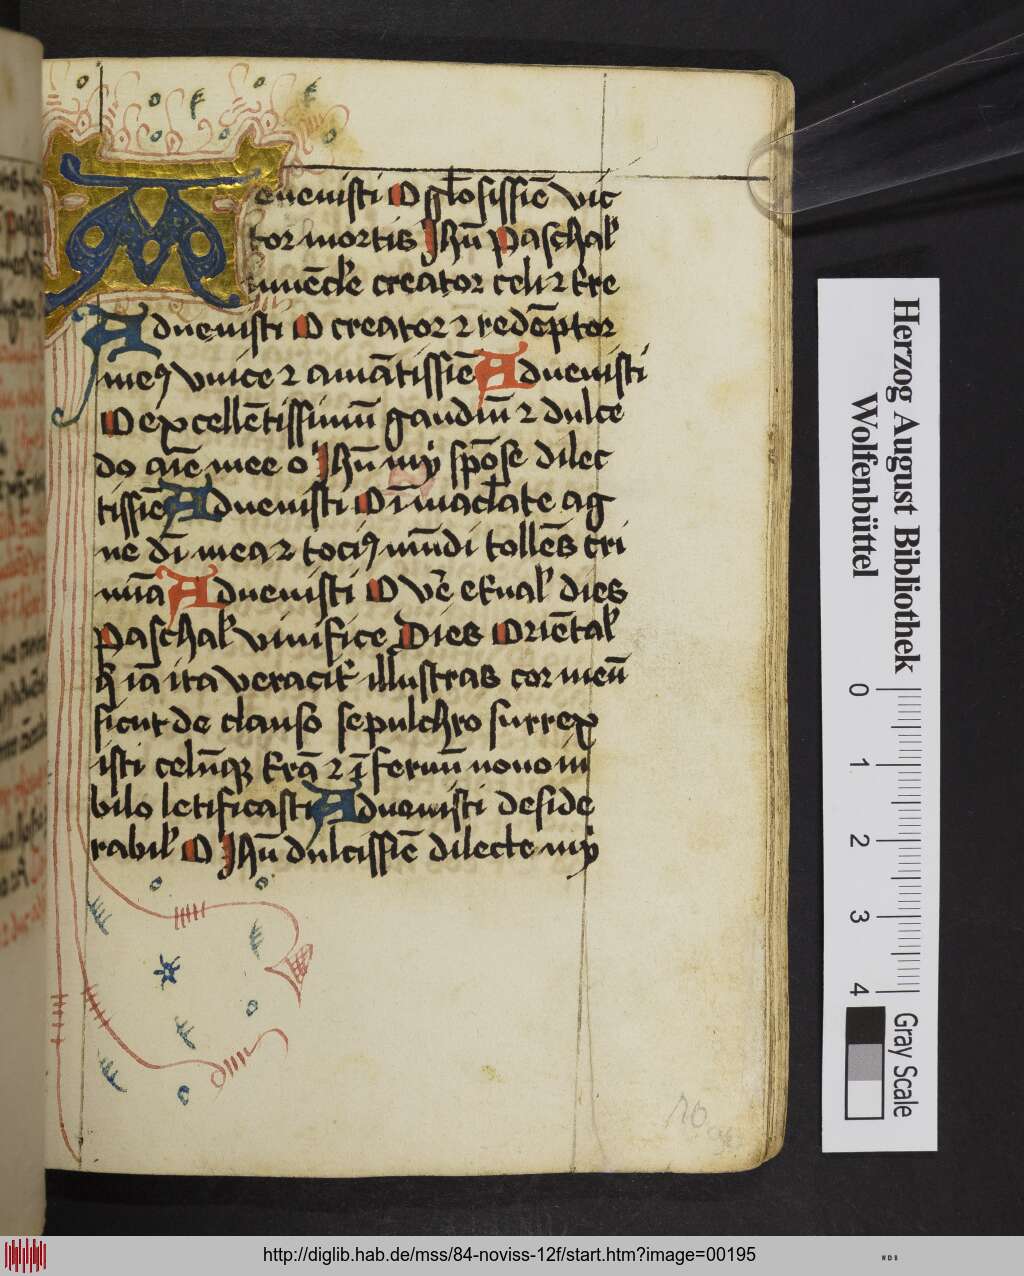 Aduenisti O gl̄osissīe vic
tor mortis Jhū paschal
iuuēcl̄e creator celi ⁊ t̄re
Aduenisti O creator ⁊ redēptor
meꝰ vnice ⁊ amātissīe Aduenisti
O excellētissimū gaudiū ⁊ dulce
do aīe mee o Jhū mi spōse dilec
tissīe Aduenisti O īmacl̄ate ag
ne dī mea ⁊ tociꝰ mūdi tollēs cri
mīa Aduenisti O vē et̄nal dies
paschal viuifice Dies Oriētal
q̄ iā ita veracit̄ illustras cor meū
sicut de clauso sepulchro surrex
isti celūqꝫ t̄rā ⁊ īfernū nouo iu
bilo letificasti Aduenisti deside
rabil O Jhū dulcissīe dilecte mi
Herzog August Bibliothek
Wolfenbüttel
0 1 2 3 4
Gray Scale
http://diglib.hab.de/mss/84-noviss-12f/start.htm?image=00195